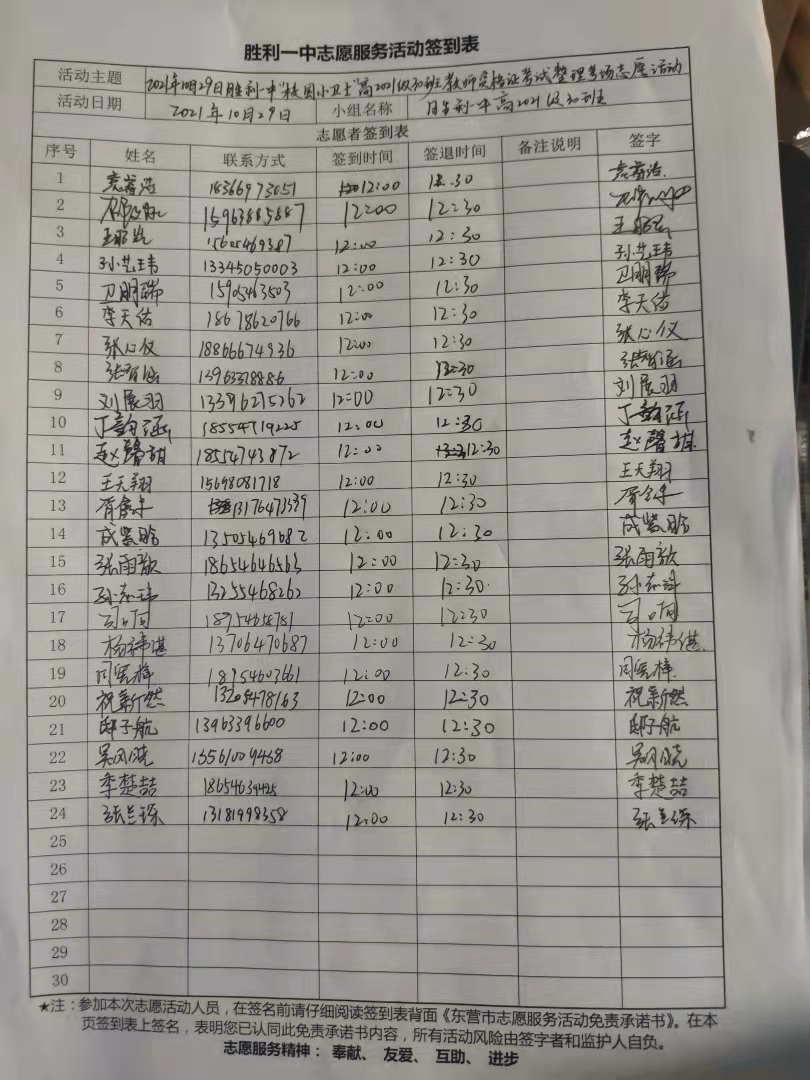 胜利一中志愿服务活动签到表
活动主题 2021年10月29日胜利一中“校园小卫士”高2021级30班教师资格证考试整理考场志愿活动
活动日期 2021年10月29日 小组名称 胜利一中高2021级30班
志愿者签到表
序号 姓名 联系方式 签到时间 签退时间 备注说明 签字
1 18366973051 12:00 12:30
2 15963885887 12:00 12:30
3 15605469387 12:00 12:30
4 孙艺玮 13345050003 12:00 12:30 孙艺玮
5 卫明瑞 15905463503 12:00 12:30 卫明瑞
6 李天佑 18678620766 12:00 12:30 李天佑
7 张心仪 18866674936 12:00 12:30 张心仪
8 12:00 12:30
9 刘展羽 12:00 12:30 刘展羽
10 18554719225 12:00 12:30
11 赵馨 18554743872 12:00 12:30 赵馨
12 王天翔 15698081718 12:00 12:30 王天翔
13 13176473539 12:00 12:30
14 成紫晗 13505469682 12:00 12:30 成紫晗
15 张雨歆 18654646563 12:00 12:30 张雨歆
16 13255468262 12:00 12:30
17 12:00 12:30
18 杨祎堪 13706470687 12:00 12:30 杨祎堪
19 周宪梓 18954603661 12:00 12:30 周宪梓
20 祝新然 12:00 12:30 祝新然
21 邸子航 13963396600 12:00 12:30 邸子航
22 吴风晓 13561009438 12:00 12:30 吴风晓
23 李楚喆 12:00 12:30 李楚喆
24 张兰琛 13181998358 12:00 12:30 张兰琛
25
26
27
28
29
30
★注：参加本次志愿活动人员，在签名前请仔细阅读签到表背面《东营市志愿服务活动免责承诺书》。在本
页签到表上签名，表明您已认同此免责承诺书内容，所有活动风险由签字者和监护人自负。
志愿服务精神：奉献、友爱、互助、进步